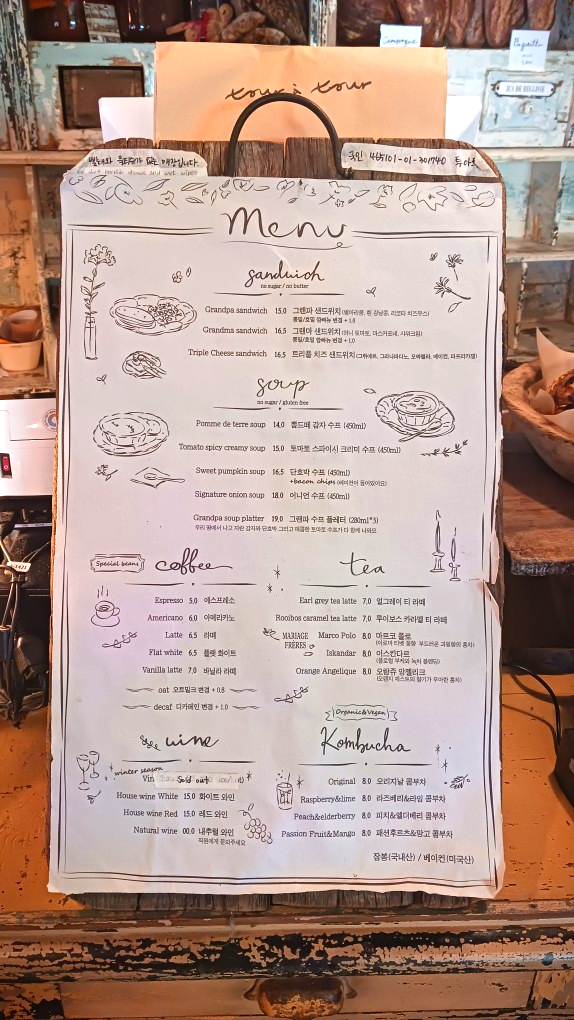 Campagne
Baguette
JUS DE REGLISSE
tour à tour
국민 445101-01-301740 투아투
Menu
sandwich
no sugar / no butter
Grandpa sandwich 15.0 그랜파 샌드위치
통밀/호밀 깜빠뉴 변경 + 1.0
Grandma sandwich 16.5 그랜마 샌드위치
통밀/호밀 깜빠뉴 변경 + 1.0
Triple Cheese sandwich 16.5 트리플 치즈 샌드위치
soup
no sugar / gluten free
Pomme de terre soup 14.0 뽐드떼 감자 수프 (450ml)
Tomato spicy creamy soup 15.0 토마토 스파이시 크리미 수프 (450ml)
Sweet pumpkin soup 16.5 단호박 수프 (450ml)
+bacon chips (베이컨이 들어있어요)
Signature onion soup 18.0 어니언 수프 (450ml)
Grandpa soup platter 19.0 그랜파 수프 플레터 (280ml*3)
우리 땅에서 나고 자란 감자와 단호박 그리고 매콤한 토마토 수프가 다 함께 나와요
Special beans
coffee
Espresso 5.0 에스프레소
Americano 6.0 아메리카노
Latte 6.5 라떼
Flat white 6.5 플랫 화이트
Vanilla latte 7.0 바닐라 라떼
oat 오트밀크 변경 + 0.8
decaf 디카페인 변경 + 1.0
tea
Earl grey tea latte 7.0 얼그레이 티 라떼
Rooibos caramel tea latte 7.0 루이보스 카라멜 티 라떼
MARIAGE FRÈRES
Marco Polo 8.0 마르코 폴로
Iskandar 8.0 이스칸다르
Orange Angelique 8.0 오랑쥬 앙젤리크
wine
winter season
Vin Sold out
House wine White 15.0 화이트 와인
House wine Red 15.0 레드 와인
Natural wine 00.0 내추럴 와인
직원에게 문의주세요
Organic&Vegan
Kombucha
Original 8.0 오리지날 콤부차
Raspberry&lime 8.0 라즈베리&라임 콤부차
Peach&elderberry 8.0 피치&엘더베리 콤부차
Passion Fruit&Mango 8.0 패션후르츠&망고 콤부차
잠봉(국내산) / 베이컨(미국산)